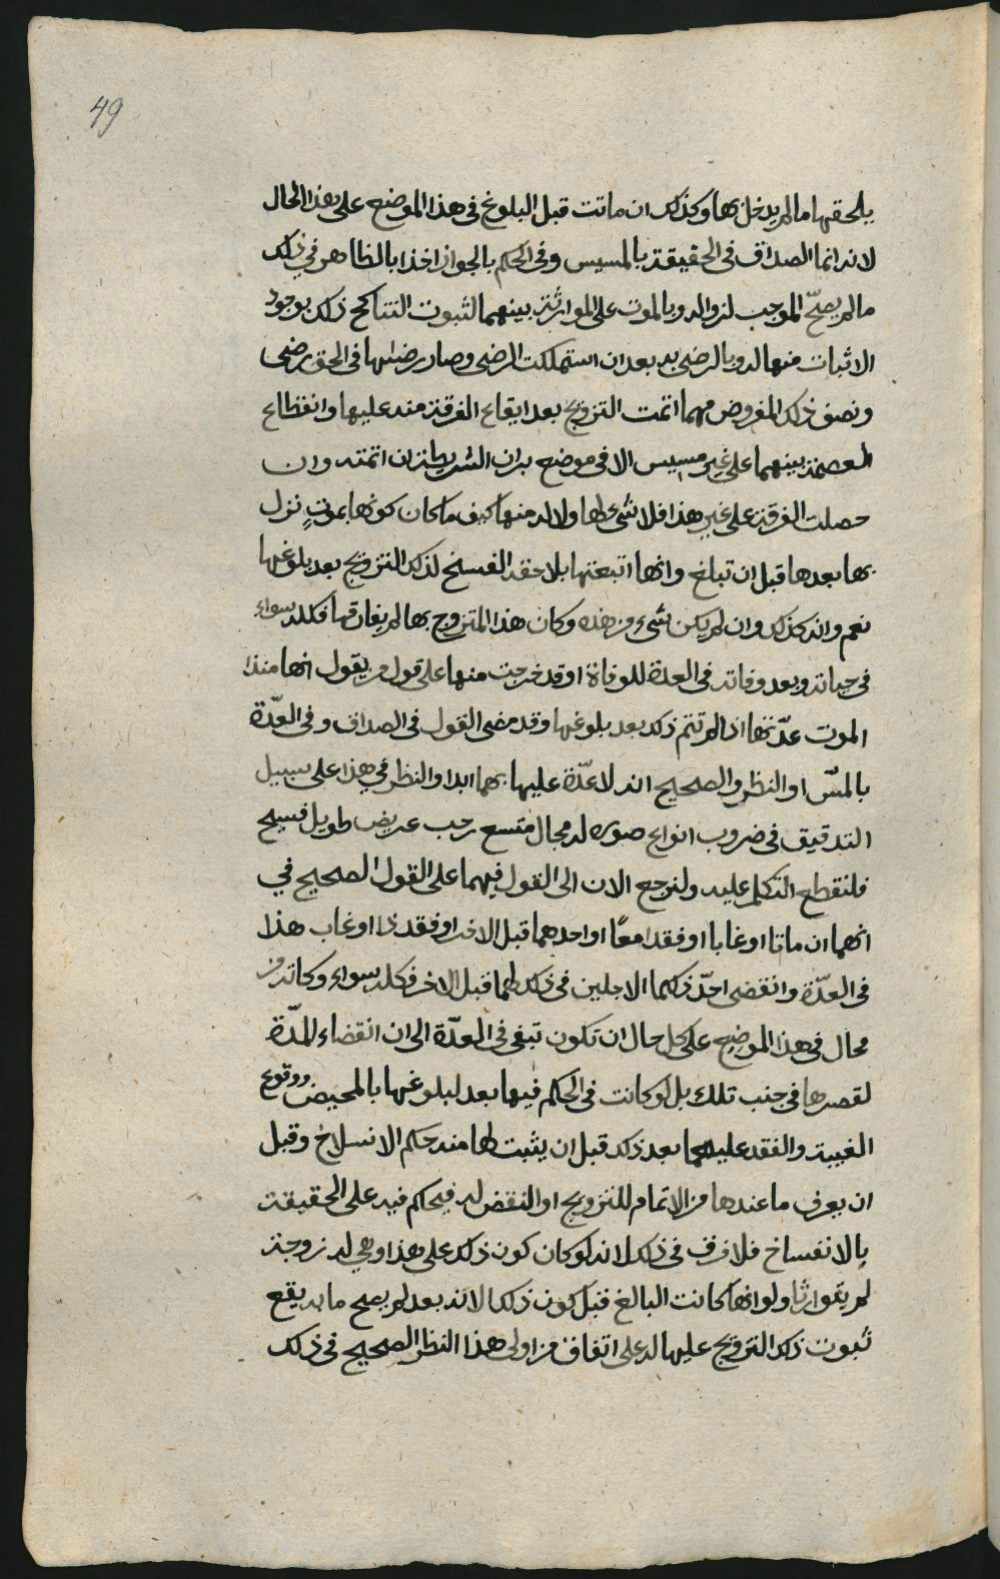 49
يلحقها ما لم يدخل بها وكذلك ان ماتت قبل البلوغ في هذا الموضع على هذا الحال
لانه انما الصداق في الحقيقة بالمسيس وفي الحكم بالجواز اخذا بالظاهر في ذلك
ما لم يصحّ الموجب لزواله وبالموت على الموارثة بينهما لثبوت التناكح ذلك بوجود
الاثبات منها له وبالرضى به بعد ان استملكت الرضى وصار رضاها في الحق رضى
ونصف ذلك المفروض مهما اتمت التزويج بعد ايقاع الفرقة منه عليها وانقطاع
العصمة بينهما على غير مسيس الا في موضع بران الشريطة ان اتمته وان
حصلت الفرقة على غير هذا فلا شيء لها ولا له منها كيف ما كان كونها بموتٍ نزل
بها بعدها قبل ان تبلغ وانها اتبعتها بلاحقه الفسخ لذلك التزويج بعد بلوغها
نعم وانه كذلك وان لم يكن شيء من هذه وكان هذا المتزوج بها لم يفارقها فكله سواء
في حياته وبعد وفاته في العدة للوفاة او قد خرجت منها على قول من يقول انها منذ
الموت عدّتها اذا لم تتم ذلك بعد بلوغها وقد مضى القول في الصداق وفي العدّة
بالمسّ او النظر والصحيح انه لا عدّة عليها بهما ابدا والنظر في هذا على سبيل
التدقيق في ضروب انواع صوره له مجال متسع رحب عريض طويل فسيح
فلنقطع التكلم عليه ولنرجع الان الى القول فيهما على القول الصحيح في
انهما ان ماتا او غابا او فقدا معًا او احدهما قبل الاخر او فقد ذا او غاب هذا
في العدّة وانقضى احدّ ذلكما الاجلين في ذلك لهما قبل الاخر فكله سواء وكانه من
محال في هذا الموضع على كل حال ان تكون تبقى في العدّة الى ان انقضاء المدّة
لقصرها في جنب تلك بل لو كانت في الحكم فيها بعد لبلوغها بالمحيض ووقوع
الغيبة والفقد عليهما بعد ذلك قبل ان يثبت لها منه حكم الانسلاخ وقبل
ان يعرف ما عندها من الاتمام للتزويج او النقض له فيحكم فيه على الحقيقة
بالانفساخ فلا فرق في ذلك لانه لو كان كون ذلك على هذا وهي له زوجة
لم يتوارثا ولو انها كانت البالغ قبل كون ذلك لانه بعد لم يصح ما به يقع
ثبوت ذلك التزويج عليها له على اتفاق من اولى هذا النظر الصحيح في ذلك